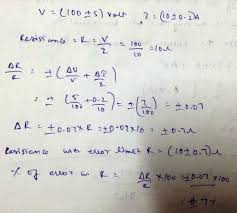 V = (100 ± 5) volt I = (10 ± 0.2) A
Resistance = R = V/I = 100/10 = 10 Ω
ΔR/R = ± (ΔV/V + ΔI/I)
= ± (5/100 + 0.2/10) = ± (7/100) = ± 0.07
ΔR = ± 0.07 × R = ± 0.07 × 10 = ± 0.7 Ω
Resistance with error limits R = (10 ± 0.7) Ω
% of error in R = ΔR/R × 100 = ± 0.07 × 100
= ± 7 %